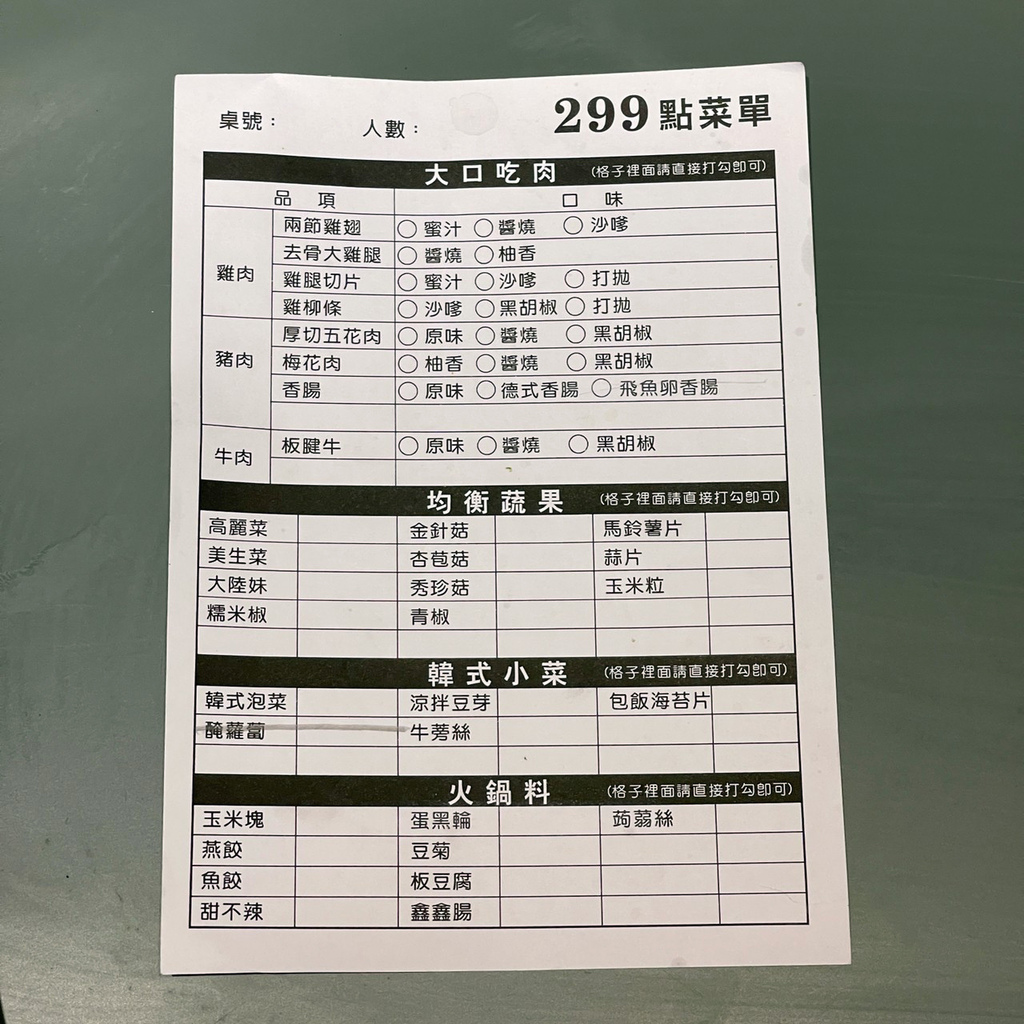 桌號： 人數： 299點菜單
大口吃肉 (格子裡面請直接打勾即可)
品項 口味
雞肉 兩節雞翅 ○ 蜜汁 ○ 醬燒 ○ 沙嗲
去骨大雞腿 ○ 醬燒 ○ 柚香
雞腿切片 ○ 蜜汁 ○ 沙嗲 ○ 打拋
雞柳條 ○ 沙嗲 ○ 黑胡椒 ○ 打拋
豬肉 厚切五花肉 ○ 原味 ○ 醬燒 ○ 黑胡椒
梅花肉 ○ 柚香 ○ 醬燒 ○ 黑胡椒
香腸 ○ 原味 ○ 德式香腸 ○ 飛魚卵香腸
牛肉 板腱牛 ○ 原味 ○ 醬燒 ○ 黑胡椒
均衡蔬果 (格子裡面請直接打勾即可)
高麗菜 金針菇 馬鈴薯片
美生菜 杏苞菇 蒜片
大陸妹 秀珍菇 玉米粒
糯米椒 青椒
韓式小菜 (格子裡面請直接打勾即可)
韓式泡菜 涼拌豆芽 包飯海苔片
醃蘿蔔 牛蒡絲
火鍋料 (格子裡面請直接打勾即可)
玉米塊 蛋黑輪 蒟蒻絲
燕餃 豆菊
魚餃 板豆腐
甜不辣 鑫鑫腸